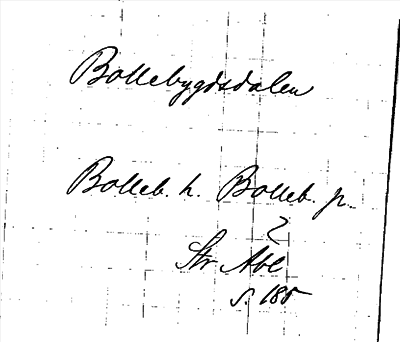 Bollebygdsdalen
Bolleb. h. Bolleb. p.
2
Str Abl
s. 185